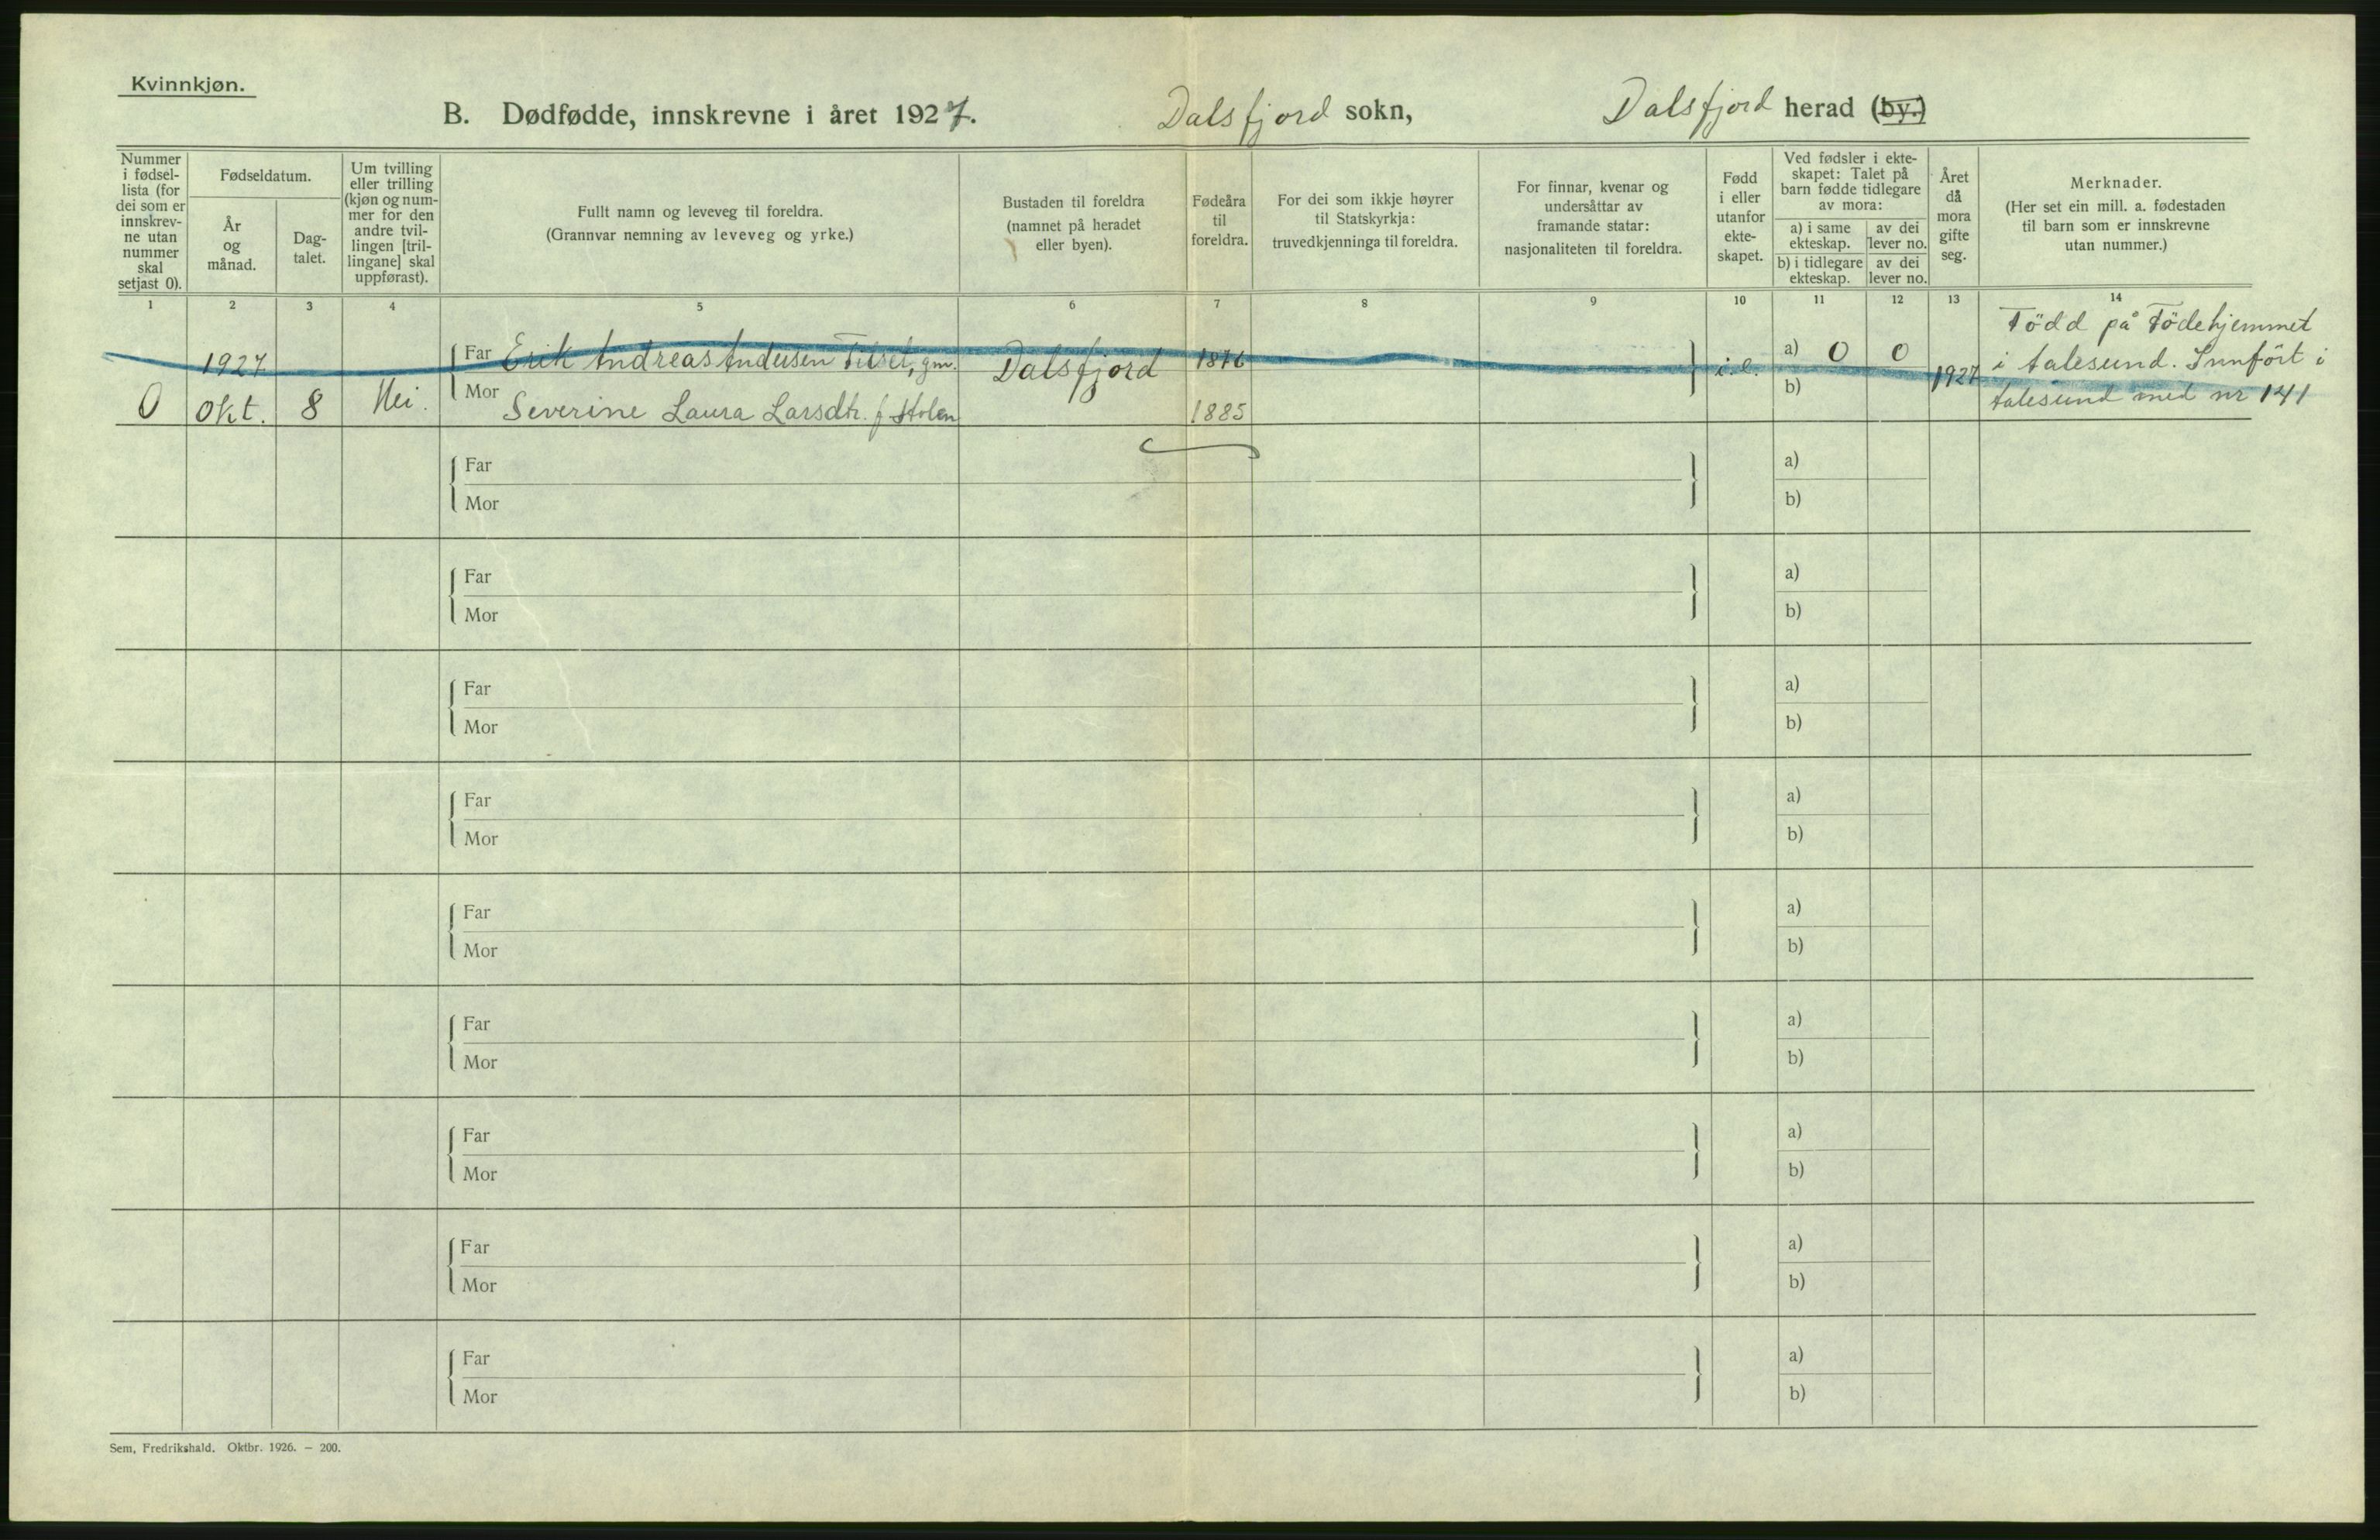 Kvinnkjøn.
B. Dødfødde, innskrevne i året 1927. Dalsfjord sokn, Dalsfjord herad (by.)
Nummer i fødsel-lista (for dei som er innskrev-ne utan nummer skal setjast 0).
Fødseldatum.
År og månad.
Dag-talet.
Um tvilling eller trilling (kjøn og num-mer for den andre tvil-lingen [tril-lingane] skal uppførast).
Fullt namn og leveveg til foreldra.
(Grannvar nemning av leveveg og yrke.)
Bustaden til foreldra
(namnet på heradet
eller byen).
Fødeåra
til
foreldra.
For dei som ikkje høyrer
til Statskyrkja:
truvedkjenninga til foreldra.
For finnar, kvenar og
undersåttar av
framande statar:
nasjonaliteten til foreldra.
Fødd
i eller
utanfor
ekte-
skapet.
Ved fødsler i ekte-
skapet: Talet på
barn fødde tidlegare
av mora:
a) i same
ekteskap.
av dei
lever no.
b) i tidlegare
ekteskap.
av dei
lever no.
Året
då
mora
gifte
seg.
Merknader.
(Her set ein mill. a. fødestaden
til barn som er innskrevne
utan nummer.)
1 2 3 4 5 6 7 8 9 10 11 12 13 14
1927 Far Erik Andreas Andersen gm. Dalsfjord 1876 i.e. a) 0 0 1927
0 Okt. 8 Nei. Mor Severine Laura Larsdtr. f 1885 b)
Född på Födehjemmet
i Aalesund. Innfört i
Aalesund med nr 141
Far a)
Mor b)
Far a)
Mor b)
Far a)
Mor b)
Far a)
Mor b)
Far a)
Mor b)
Far a)
Mor b)
Far a)
Mor b)
Far a)
Mor b)
Far a)
Mor b)
Sem, Fredrikshald. Oktbr. 1926. — 200.